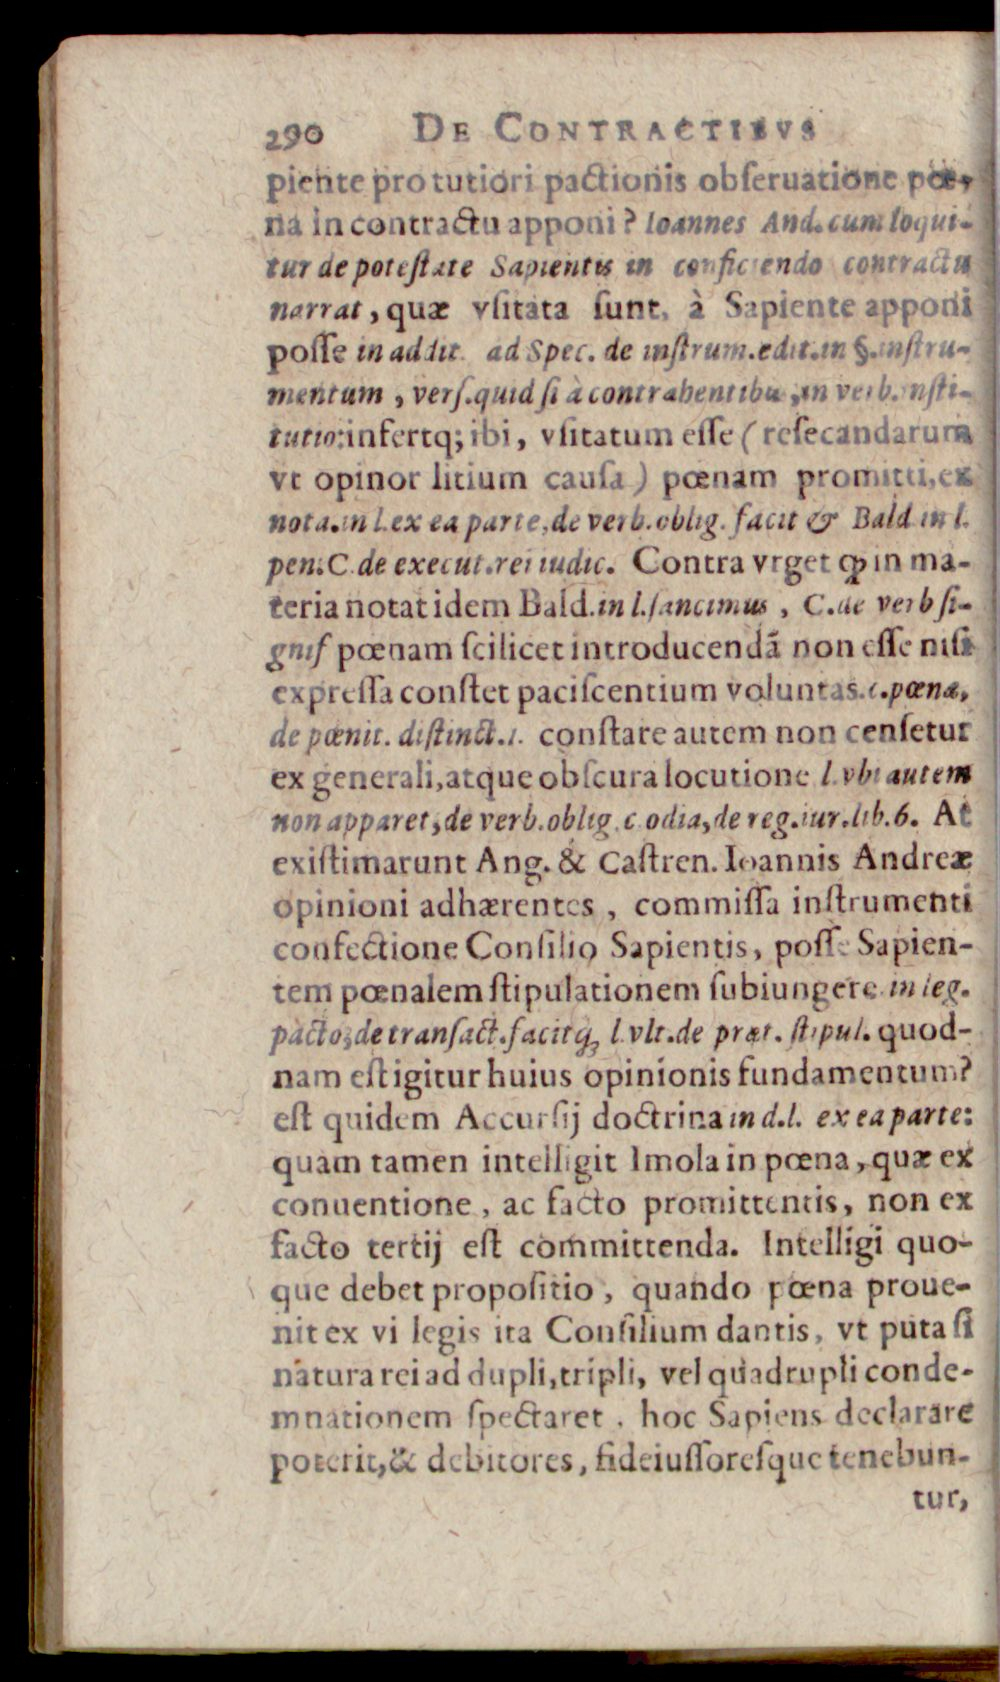 290 DE CONTRACTIBVS
piente pro tutiori pactionis obſeruatione pœ-
na in contractu apponi? Ioannes And. cum loqui-
tur de poteſtate Sapientis in conficiendo contractu
narrat, quæ vſitata ſunt, à Sapiente apponi
poſſe in addit. ad Spec. de inſtrum. edit. in §. inſtru-
mentum, verſ. quid ſi à contrahentibus, in verb. inſti-
tutio: infertq; ibi, vſitatum eſſe (reſecandarum
vt opinor litium cauſa) pœnam promitti, ex
nota. in l. ex ea parte, de verb. oblig. facit & Bald. in l.
pen. C. de execut. rei iudic. Contra vrget ꝙ in ma-
teria notat idem Bald. in l. ſancimus, C. de verb ſi-
gnif pœnam ſcilicet introducendã non eſſe niſi
expreſſa conſtet paciſcentium voluntas. c. pœnæ,
de pœnit. diſtinct. 1. conſtare autem non cenſetur
ex generali, atque obſcura locutione l. vbi autem
non apparet, de verb. oblig. c. odia, de reg. iur. lib. 6. At
exiſtimarunt Ang. & Caſtren. Ioannis Andreæ
opinioni adhærentes, commiſſa inſtrumenti
confectione Conſilio Sapientis, poſſe Sapien-
tem pœnalem ſtipulationem ſubiungere in leg.
pacto, de tranſact. facitq; l. vlt. de præt. ſtipul. quod-
nam eſt igitur huius opinionis fundamentum?
eſt quidem Accurſij doctrina in d. l. ex ea parte:
quam tamen intelligit Imola in pœna, quæ ex
conuentione, ac facto promittentis, non ex
facto tertij eſt committenda. Intelligi quo-
que debet propoſitio, quando pœna proue-
nit ex vi legis ita Conſilium dantis, vt puta ſi
natura rei ad dupli, tripli, vel quadrupli conde-
mnationem ſpectaret. hoc Sapiens declarare
poterit, & debitores, fideiuſſoreſque tenebun-
tur,